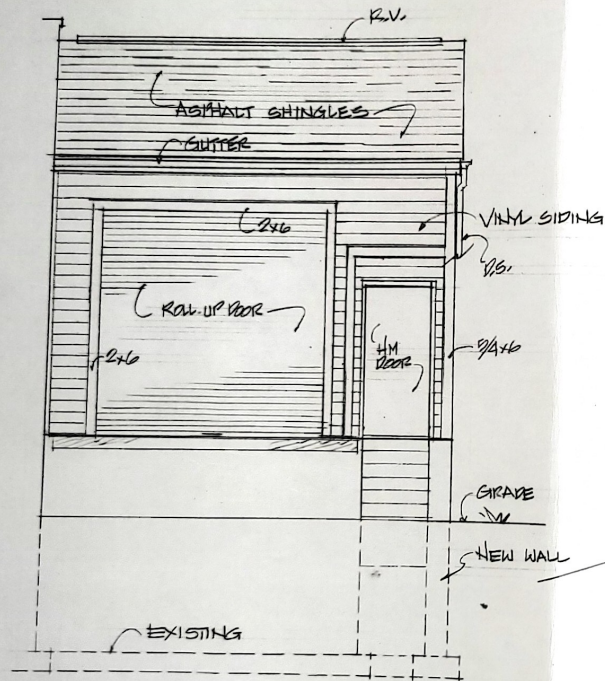 R.V.
ASPHALT SHINGLES
GUTTER
2x6
VINYL SIDING
D.S.
ROLL-UP DOOR
HM
DOOR
2x6
5/4x6
GRADE
NEW WALL
EXISTING